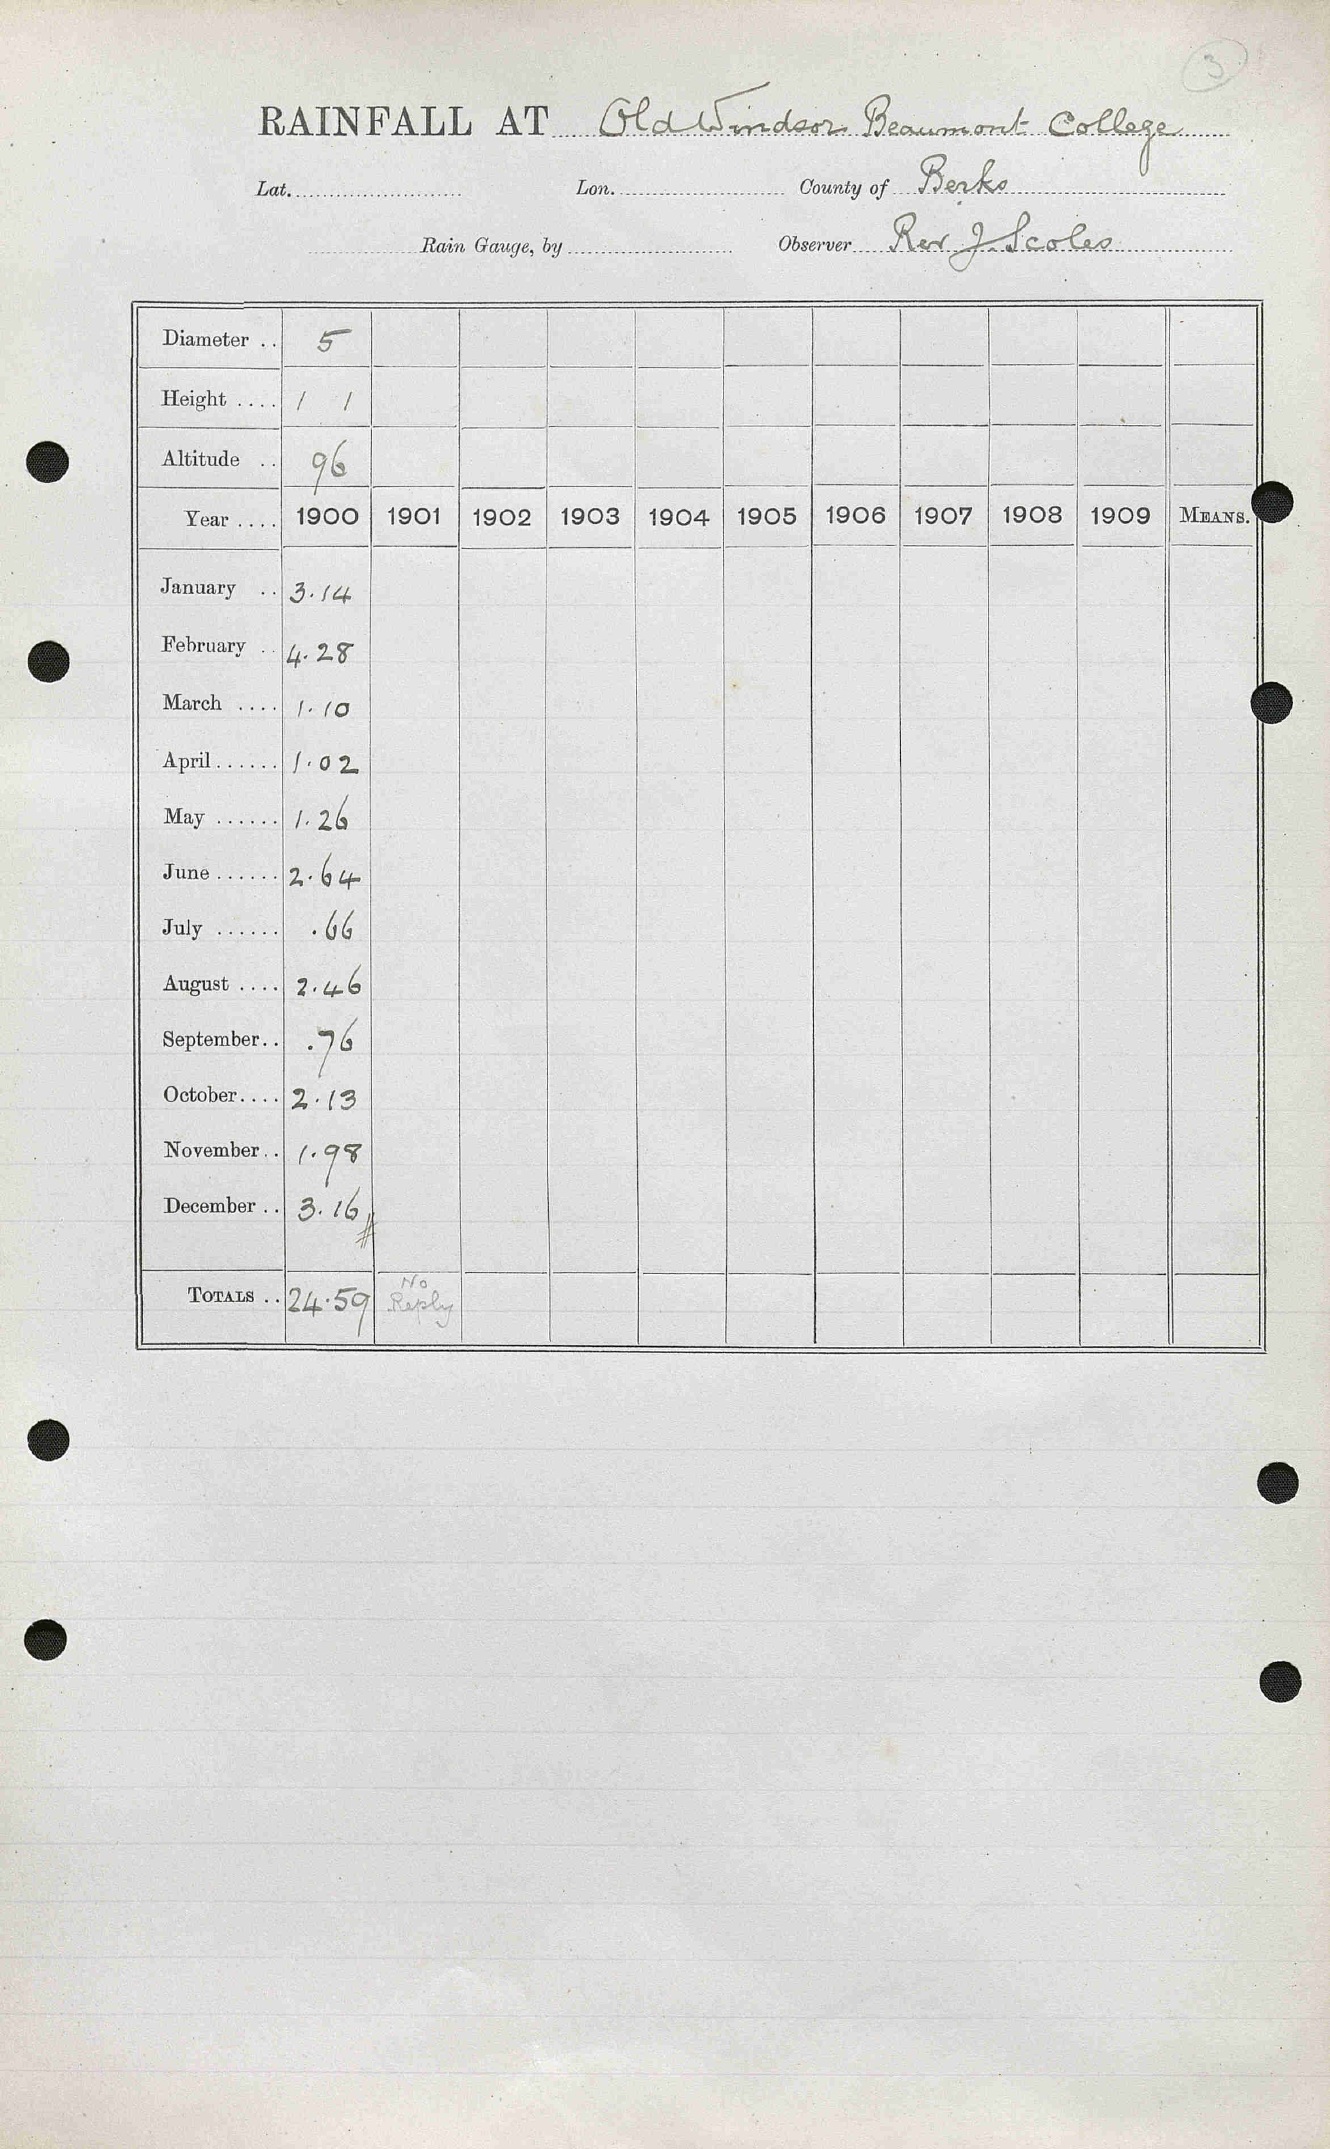 3
RAINFALL AT Old Windsor Beaumont College
Lat. Lon. County of Berks
Rain Gauge, by Observer Rev J. Scoles
Diameter .. 5
Height .... 1 1
Altitude .. 96
Year .... 1900 1901 1902 1903 1904 1905 1906 1907 1908 1909 MEANS.
January .. 3.14
February .. 4.28
March .... 1.10
April ...... 1.02
May ...... 1.26
June ...... 2.64
July ...... .66
August .... 2.46
September .. .76
October .... 2.13
November .. 1.98
December .. 3.16 #
TOTALS .. 24.59 No Reply